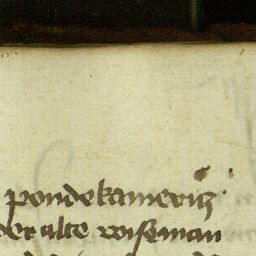 pondekameritz
der alte wiseman